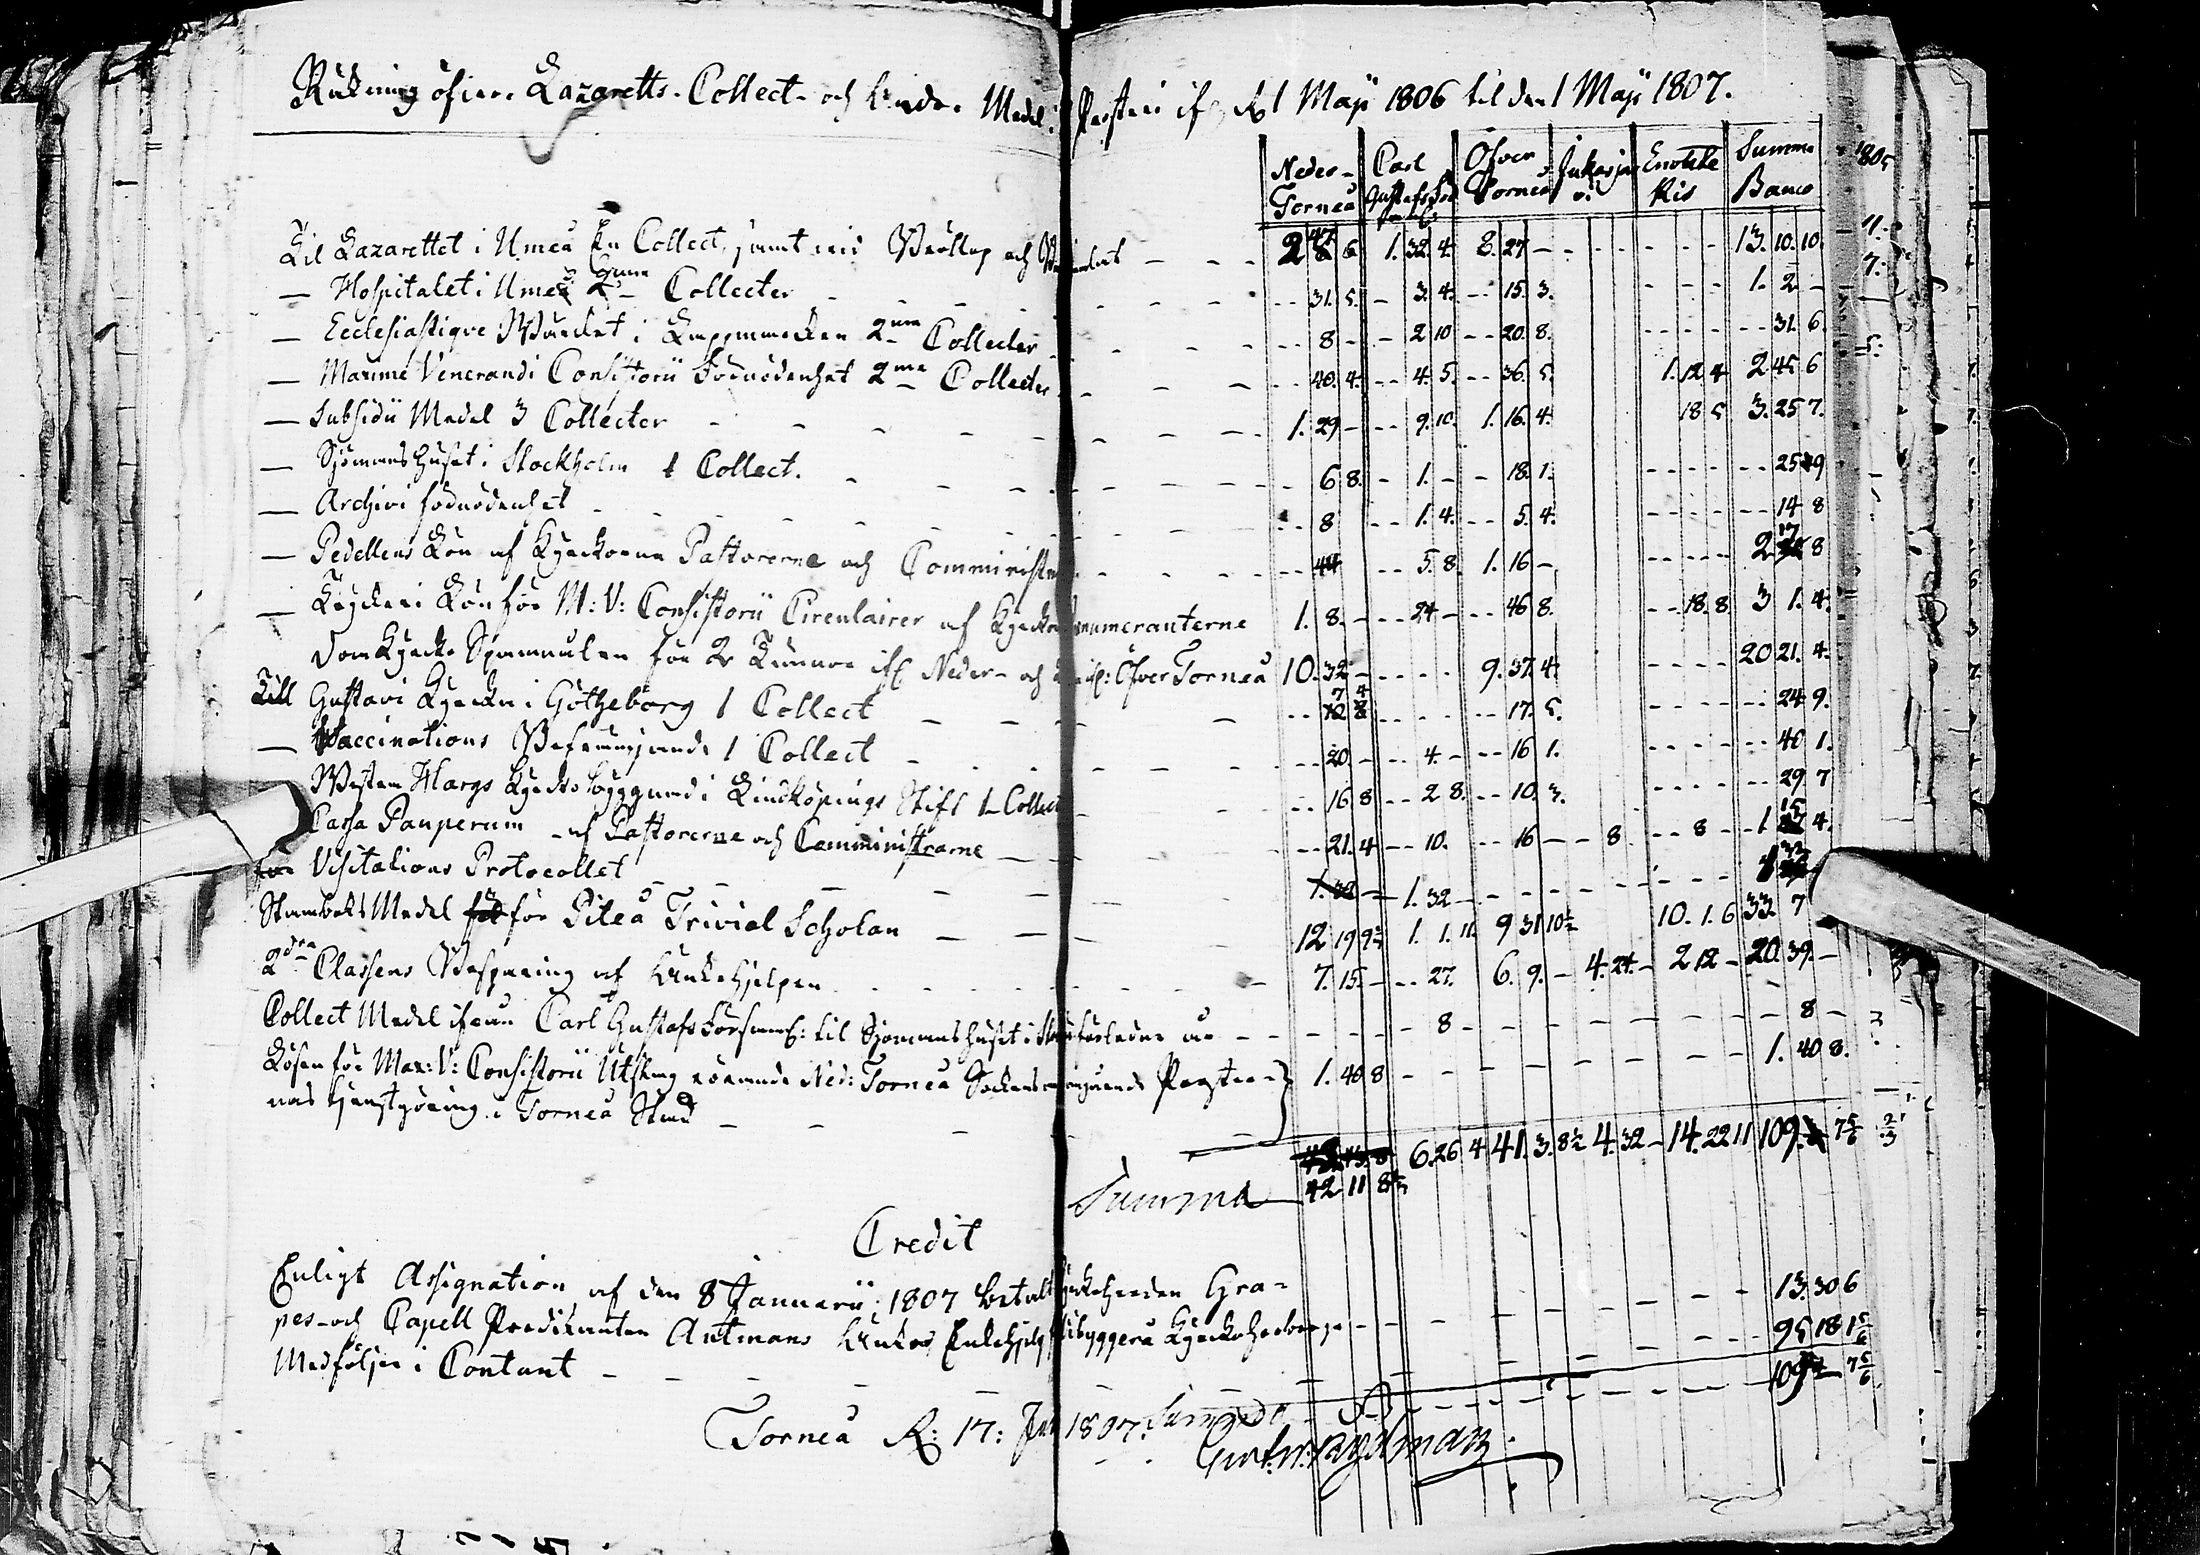 Räkning öfver Lazaretts- Collect- och andre Medel i Prosteri ifr. d. 1 Maji 1806 til den 1 Maji 1807.
Neder- Torneå | Carl Gustafs | Öfver Torneå | Jukasjerfvi | Enoteke kis | Summa Banco
Til Lazarettet i Umeå En Collect, samt vid Bröllop och - - - 2 47 6 1. 32. 4. 8. 27 - - - - - - - 13. 10. 10.
— Hospitalet i Umeå 2ne Collecter - - 31. 5. - 3. 4. - - 15. 3. - - - - 1. 2 -
— Ecclesiastique Wärcket i Lappmarcken 2ne Collecter - - 8 - - 2 10 - - 20. 8. - - - - - - 31. 6.
— Maxime Venerandi Consistorii Förnödenhet 2ne Collecter - - 40. 4. - - 4. 5. - - 36. 5. 1. 12 4 2 45 6
— Subsidii Medel 3 Collecter 1. 29 - - - 9. 10. 1. 16. 4. 18 5 3. 25 7.
— Sjömanshuset i Stockholm 1 Collect. - 6 8. - 1. - - 18. 1. - - - - - - 25 9
— Archivi förnödenhet - - 8 - - 1. 4. - - 5. 4. - - - - - - 14 8
— Pedellens Lön af Kyrkorne Pastorerne och Comministr - - 44 - - 5. 8. 1. 16 - - - - - 2 17 8
— Tryckeri Lön för M: V: Consistorii Circulairer af Kyrko numeranterne 1. 8. - - - 24 - - - 46 8. - - 18. 8. 3 1. 4.
DomKyrko Spannmålen för 2 Tunnor if. Neder- och Öfver Torneå 10. 32 - - - - - 9. 37. 4. - - - - 20 21. 4.
Till Gustavi Kyrka i Götheborg 1 Collect - - 7 4 - - - - - - 17. 5. - - - - - - 24 9.
— Vaccinations Befrämjande 1 Collect - - 20. - - - 4. - - - 16 1. - - - - - - 40 1.
Westra Hargs Kyrko byggnad i Linköpings Stift 1 Collect - - 16 8 - - 2 8. - - 10. 3. - - - - - - 29 7
Cassa Pauperum - af Pastorerne och Comministrarne - - 21. 4 - - 10. - - 16 - - 8 - - 8 - - 1 15 4.
för Visitations Protocollet 1. 32 - 1. 32 - - - - - - - - -
Stamboks Medel för Piteå Trivial Scholan 12 19 9 1. 1. 11. 9 31 10½ 10. 1. 6 33. 7
2dra Classens Besparing af Enkehjelpen 7. 15. - - - 27. 6. 9. - 4. 24. - 2 12 - 20. 39. -
Collect Medel ifrån Carl Gustafs Församl: til Sjömanshuset i förledne år - - - - - 8 - - - - - - - - 8 -
Lösen för Max: V: Consistorii Utslag rörande Ned: Torneå Sockens Prester- 1. 40 8 - - - - - - - - 1. 40 8.
nas tjenstgöring i Torneå Stad
Summa 42 11 8 6. 26 4 41. 3. 8½ 4. 32 - 14. 22 11 109. 7 5/6
Credit
Enligt Assignation af den 8 Januarii 1807 betalt Kyrkoherden Gra-
pes- och Capell Predikanten Antmans Enkehjelp Kyrkoherberge - - - 13. 30 6
Medföljer i Contant - - - 95 18 1 5/6
Summa 109 7 5/6
Torneå d. 17: 1807.